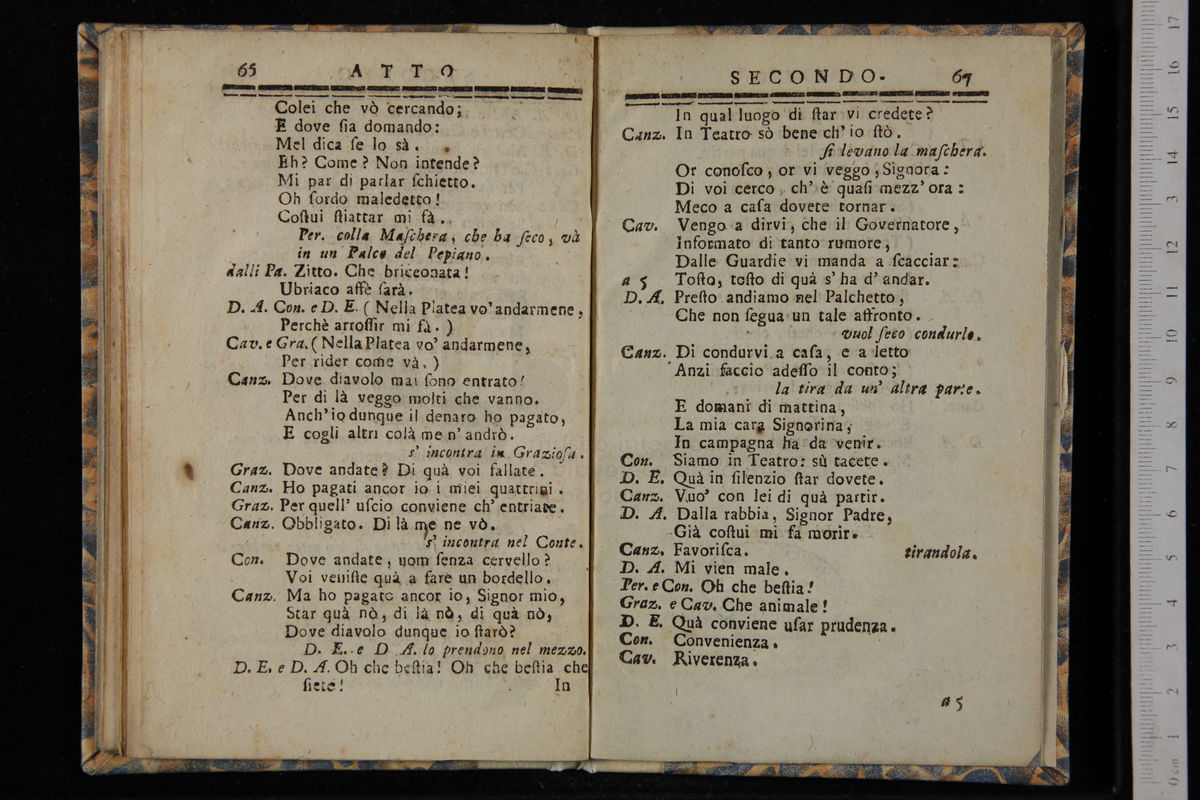 65 ATTO
Colei che vò cercando;
E dove ſia domando:
Mel dica ſe lo sà.
Eh? Come? Non intende?
Mi par di parlar ſchietto.
Oh ſordo maledetto!
Coſtui ſtiattar mi fà.
Per. colla Maſchera, che ha ſeco, và
in un Palco del Pepiano.
dalli Pa. Zitto. Che briceonata!
Ubriaco affè ſarà.
D. A. Con. e D. E. (Nella Platea vo' andarmene,
Perchè arroſſir mi fà.)
Cav. e Gra. (Nella Platea vo' andarmene,
Per rider come và.)
Canz. Dove diavolo mai ſono entrato!
Per di là veggo molti che vanno.
Anch'io dunque il denaro ho pagato,
E cogli altri colà me n'andrò.
s' incontra in Grazioſa.
Graz. Dove andate? Di quà voi fallate.
Canz. Ho pagati ancor io i miei quattrini.
Graz. Per quell' uſcio conviene ch' entriate.
Canz. Obbligato. Di là me ne vò.
s' incontra nel Conte.
Con. Dove andate, uom ſenza cervello?
Voi veniſte quà a fare un bordello.
Canz. Ma ho pagato ancor io, Signor mio,
Star quà nò, di là nò, di quà nò,
Dove diavolo dunque io ſtarò?
D. E. e D A. lo prendono nel mezzo.
D. E. e D. A. Oh che beſtia! Oh che beſtia che
ſiete! In
SECONDO. 67
In qual luogo di ſtar vi credete?
Canz. In Teatro sò bene ch' io ſtò.
ſi levano la maſchera.
Or conoſco, or vi veggo, Signora:
Di voi cerco, ch' è quaſi mezz' ora:
Meco a caſa dovete tornar.
Cav. Vengo a dirvi, che il Governatore,
Informato di tanto rumore,
Dalle Guardie vi manda a ſcacciar:
a 5 Toſto, toſto di quà s' ha d' andar.
D. A. Preſto andiamo nel Palchetto,
Che non ſegua un tale affronto.
vuol ſeco condurlo.
Canz. Di condurvi a caſa, e a letto
Anzi faccio adeſſo il conto;
la tira da un' altra parte.
E domani di mattina,
La mia cara Signorina,
In campagna ha da venir.
Con. Siamo in Teatro: sù tacete.
D. E. Quà in ſilenzio ſtar dovete.
Canz. Vuo' con lei di quà partir.
D. A. Dalla rabbia, Signor Padre,
Già coſtui mi fa morir.
Canz. Favoriſca. tirandola.
D. A. Mi vien male.
Per. e Con. Oh che beſtia!
Graz. e Cav. Che animale!
D. E. Quà conviene uſar prudenza.
Con. Convenienza.
Cav. Riverenza.
a 5
17 16 15 14 13 12 11 10 9 8 7 6 5 4 3 2 1 0 cm